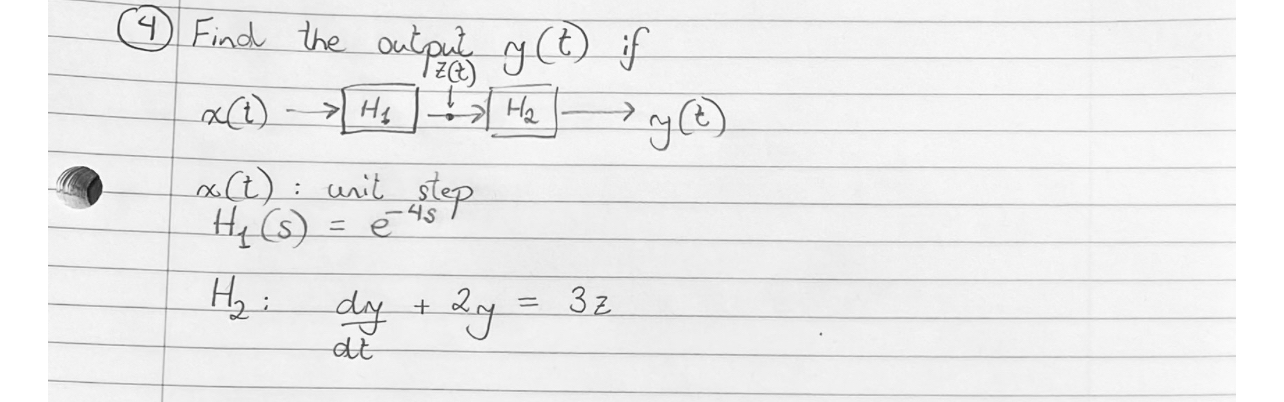 ④ Find the output y(t) if
z(t)
x(t) → H₁ → H₂ → y(t)
x(t) : unit step
H₁(s) = e^{-4s}
H₂: dy/dt + 2y = 3z